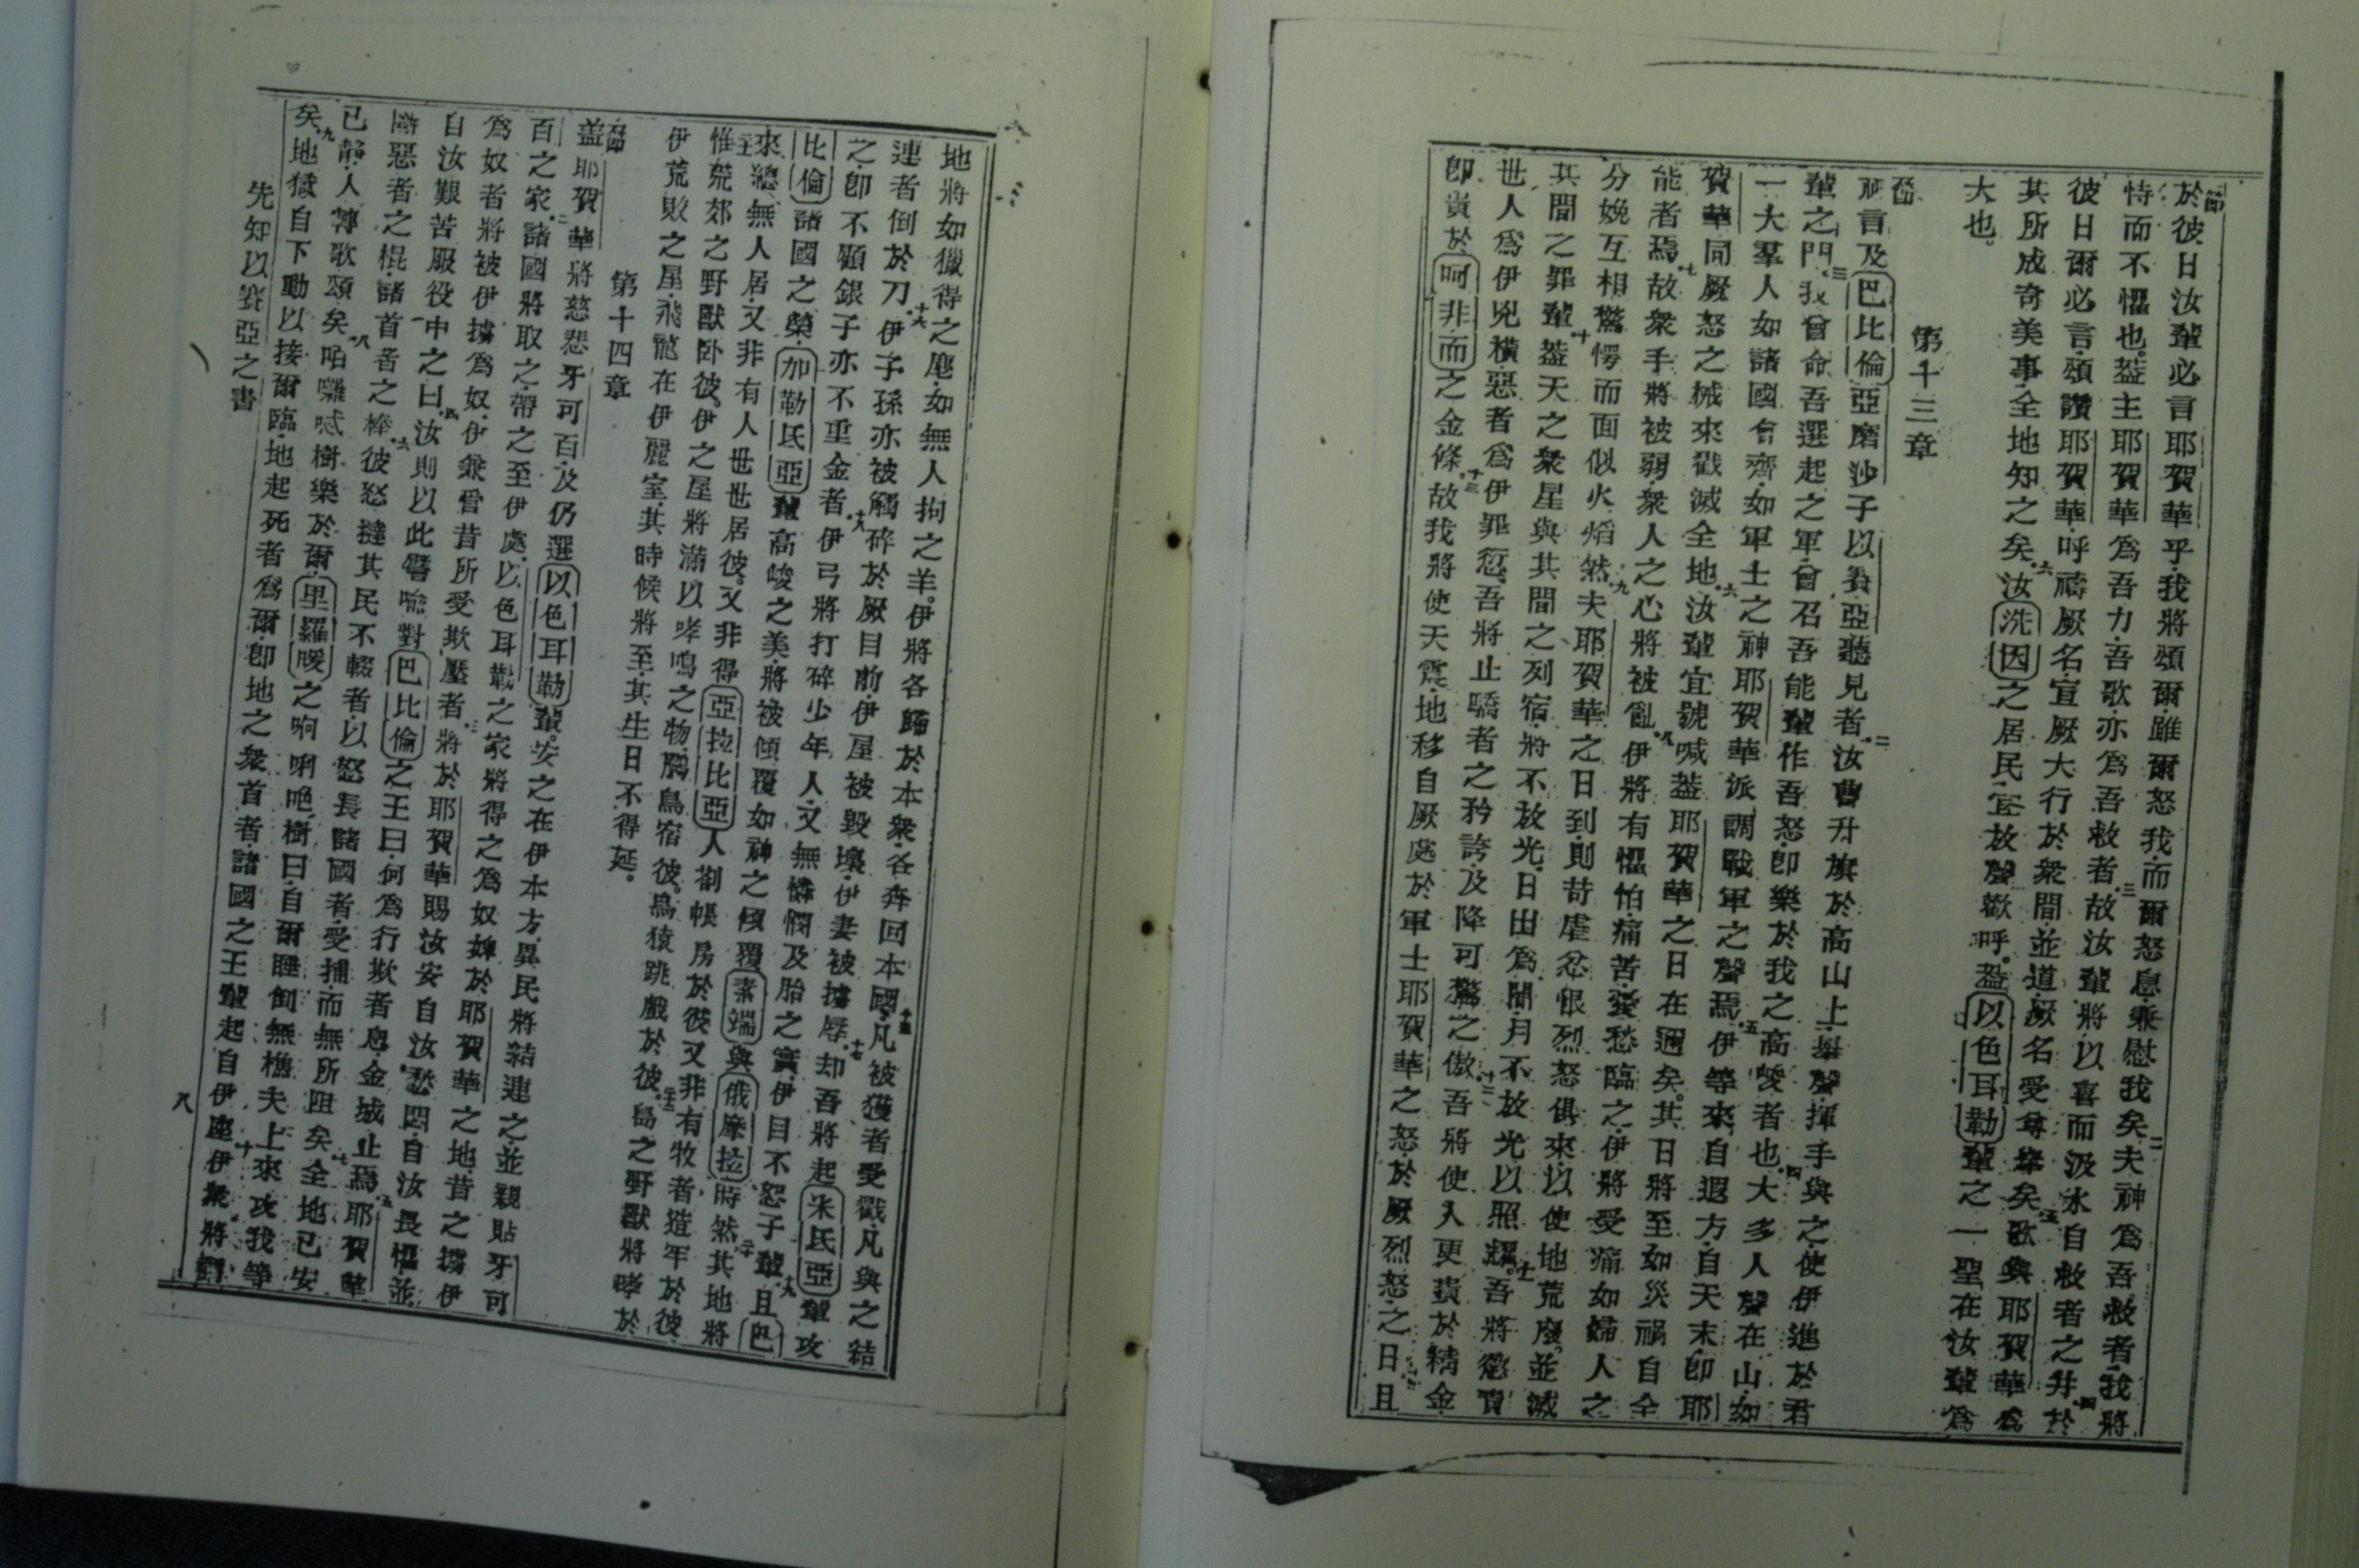 於彼日汝輩必言耶賀華乎我將頌爾雖爾怒我而爾怒息乘慰我矣二夫神為吾救者我將
恃而不懼也蓋主耶賀華為吾力吾歌亦為吾救者三故汝輩將以喜而汲水自救者之井四於
彼日爾必言頌讚耶賀華呼禱厥名宣厥大行於衆間並道厥名受尊舉矣五歌與耶賀華為
其所成奇美事全地知之矣六汝洗因之居民宜放聲歡呼蓋以色耳勒輩之一聖在汝輩為
大也
第十三章
言及巴比倫亞磨沙子以賽亞聽見者二汝曹升旗於高山上舉聲揮手與之使伊進於君
輩之門三我曾命吾選起之軍曾召吾能輩作吾怒即樂於我之高峻者也四大多人聲在山如
一大羣人如諸國會齊如軍士之神耶賀華派調戰軍之聲焉五伊等來自遐方自天末即耶
賀華同厥怒之械來戳滅全地六汝輩宜號喊蓋耶賀華之日在邇矣其日將至如災禍自全
能者焉七故衆手將被弱衆人之心將被亂八伊將有懼怕痛苦憂愁臨之伊將受痛如婦人之
分娩互相驚愕而面似火焰然九夫耶賀華之日到則苛虐忿恨烈怒俱來以使地荒廢並滅
其間之罪輩十蓋天之衆星與其間之列宿將不放光日出為闇月不放光以照耀十一吾將懲責
世人為伊兇橫惡者為伊罪愆吾將止驕者之矜誇及降可驚之傲十二吾將使人更貴於精金
即貴於呵非而之金條十三故我將使天震地移自厥處於軍士耶賀華之怒於厥烈怒之日十四且
地將如獵得之麀如無人拘之羊伊將各歸於本衆各奔回本國十五凡被獲者受戳凡與之結
連者倒於刀十六伊子孫亦被觸碎於厥目前伊屋被毀壞伊妻被擄辱十七却吾將起米氏亞輩攻
之即不顧銀子亦不重金者十八伊弓將打碎少年人又無憐憫及胎之實伊目不恕子輩十九且巴
比倫諸國之榮加勒氏亞輩高峻之美將被傾覆如神之傾覆素端與俄摩拉時然二十其地將
來總無人居又非有人世世居彼又非得亞拉比亞人劄帳房於彼又非有牧者造牢於彼
惟荒郊之野獸卧彼伊之屋將滿以哮鳴之物鵩鳥宿彼鳥猿跳戲於彼二十二島之野獸將哮於
伊荒敗之屋飛龍在伊麗室其時候將至其生日不得延
第十四章
蓋耶賀華將慈悲牙可百及仍選以色耳勒輩安之在伊本方異民將結連之並親貼牙可
百之家二諸國將取之帶之至伊處以色耳勒之家將得之為奴婢於耶賀華之地昔之擄伊
為奴者將被伊擄為奴伊兼管昔所受欺壓者三將於耶賀華賜汝安自汝愁悶自汝長懼並
自汝艱苦服役中之日四汝則以此譬喻對巴比倫之王曰何為行欺者息金城止焉五耶賀華
斷惡者之棍諸首者之棒六彼怒撻其民不輟者以怒長諸國者受捕而無所阻矣七全地已安
已靜人轉歌頌矣八咟囇忒樹樂於爾里羅暖之㗂唎𠱂樹曰自爾睡倒無樵夫上來攻我等
矣九地獄自下動以接爾臨地起死者為爾即地之衆首者諸國之王輩起自伊座十伊衆將對
先知以賽亞之書
八